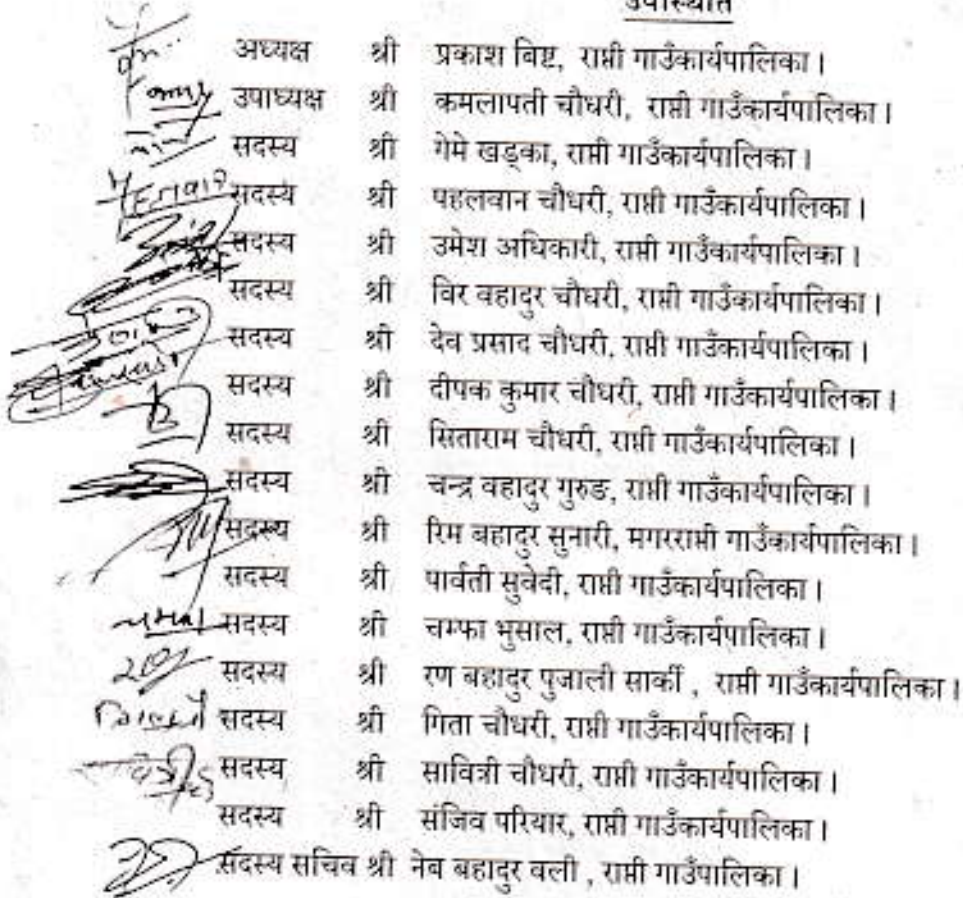 उपस्थिति
अध्यक्ष श्री प्रकाश बिष्ट, राप्ती गाउँकार्यपालिका।
उपाध्यक्ष श्री कमलापती चौधरी, राप्ती गाउँकार्यपालिका।
सदस्य श्री गेमे खड्का, राप्ती गाउँकार्यपालिका।
सदस्य श्री पहलवान चौधरी, राप्ती गाउँकार्यपालिका।
सदस्य श्री उमेश अधिकारी, राप्ती गाउँकार्यपालिका।
सदस्य श्री विर वहादुर चौधरी, राप्ती गाउँकार्यपालिका।
सदस्य श्री देव प्रसाद चौधरी, राप्ती गाउँकार्यपालिका।
सदस्य श्री दीपक कुमार चौधरी, राप्ती गाउँकार्यपालिका।
सदस्य श्री सिताराम चौधरी, राप्ती गाउँकार्यपालिका।
सदस्य श्री चन्द्र वहादुर गुरुङ, राप्ती गाउँकार्यपालिका।
सदस्य श्री रिम बहादुर सुनारी, मगरराप्ती गाउँकार्यपालिका।
सदस्य श्री पार्वती सुवेदी, राप्ती गाउँकार्यपालिका।
सदस्य श्री चम्फा भुसाल, राप्ती गाउँकार्यपालिका।
सदस्य श्री रण बहादुर पुजाली सार्की , राप्ती गाउँकार्यपालिका।
सदस्य श्री गिता चौधरी, राप्ती गाउँकार्यपालिका।
सदस्य श्री सावित्री चौधरी, राप्ती गाउँकार्यपालिका।
सदस्य श्री संजिव परियार, राप्ती गाउँकार्यपालिका।
सदस्य सचिव श्री नेब बहादुर वली , राप्ती गाउँपालिका।